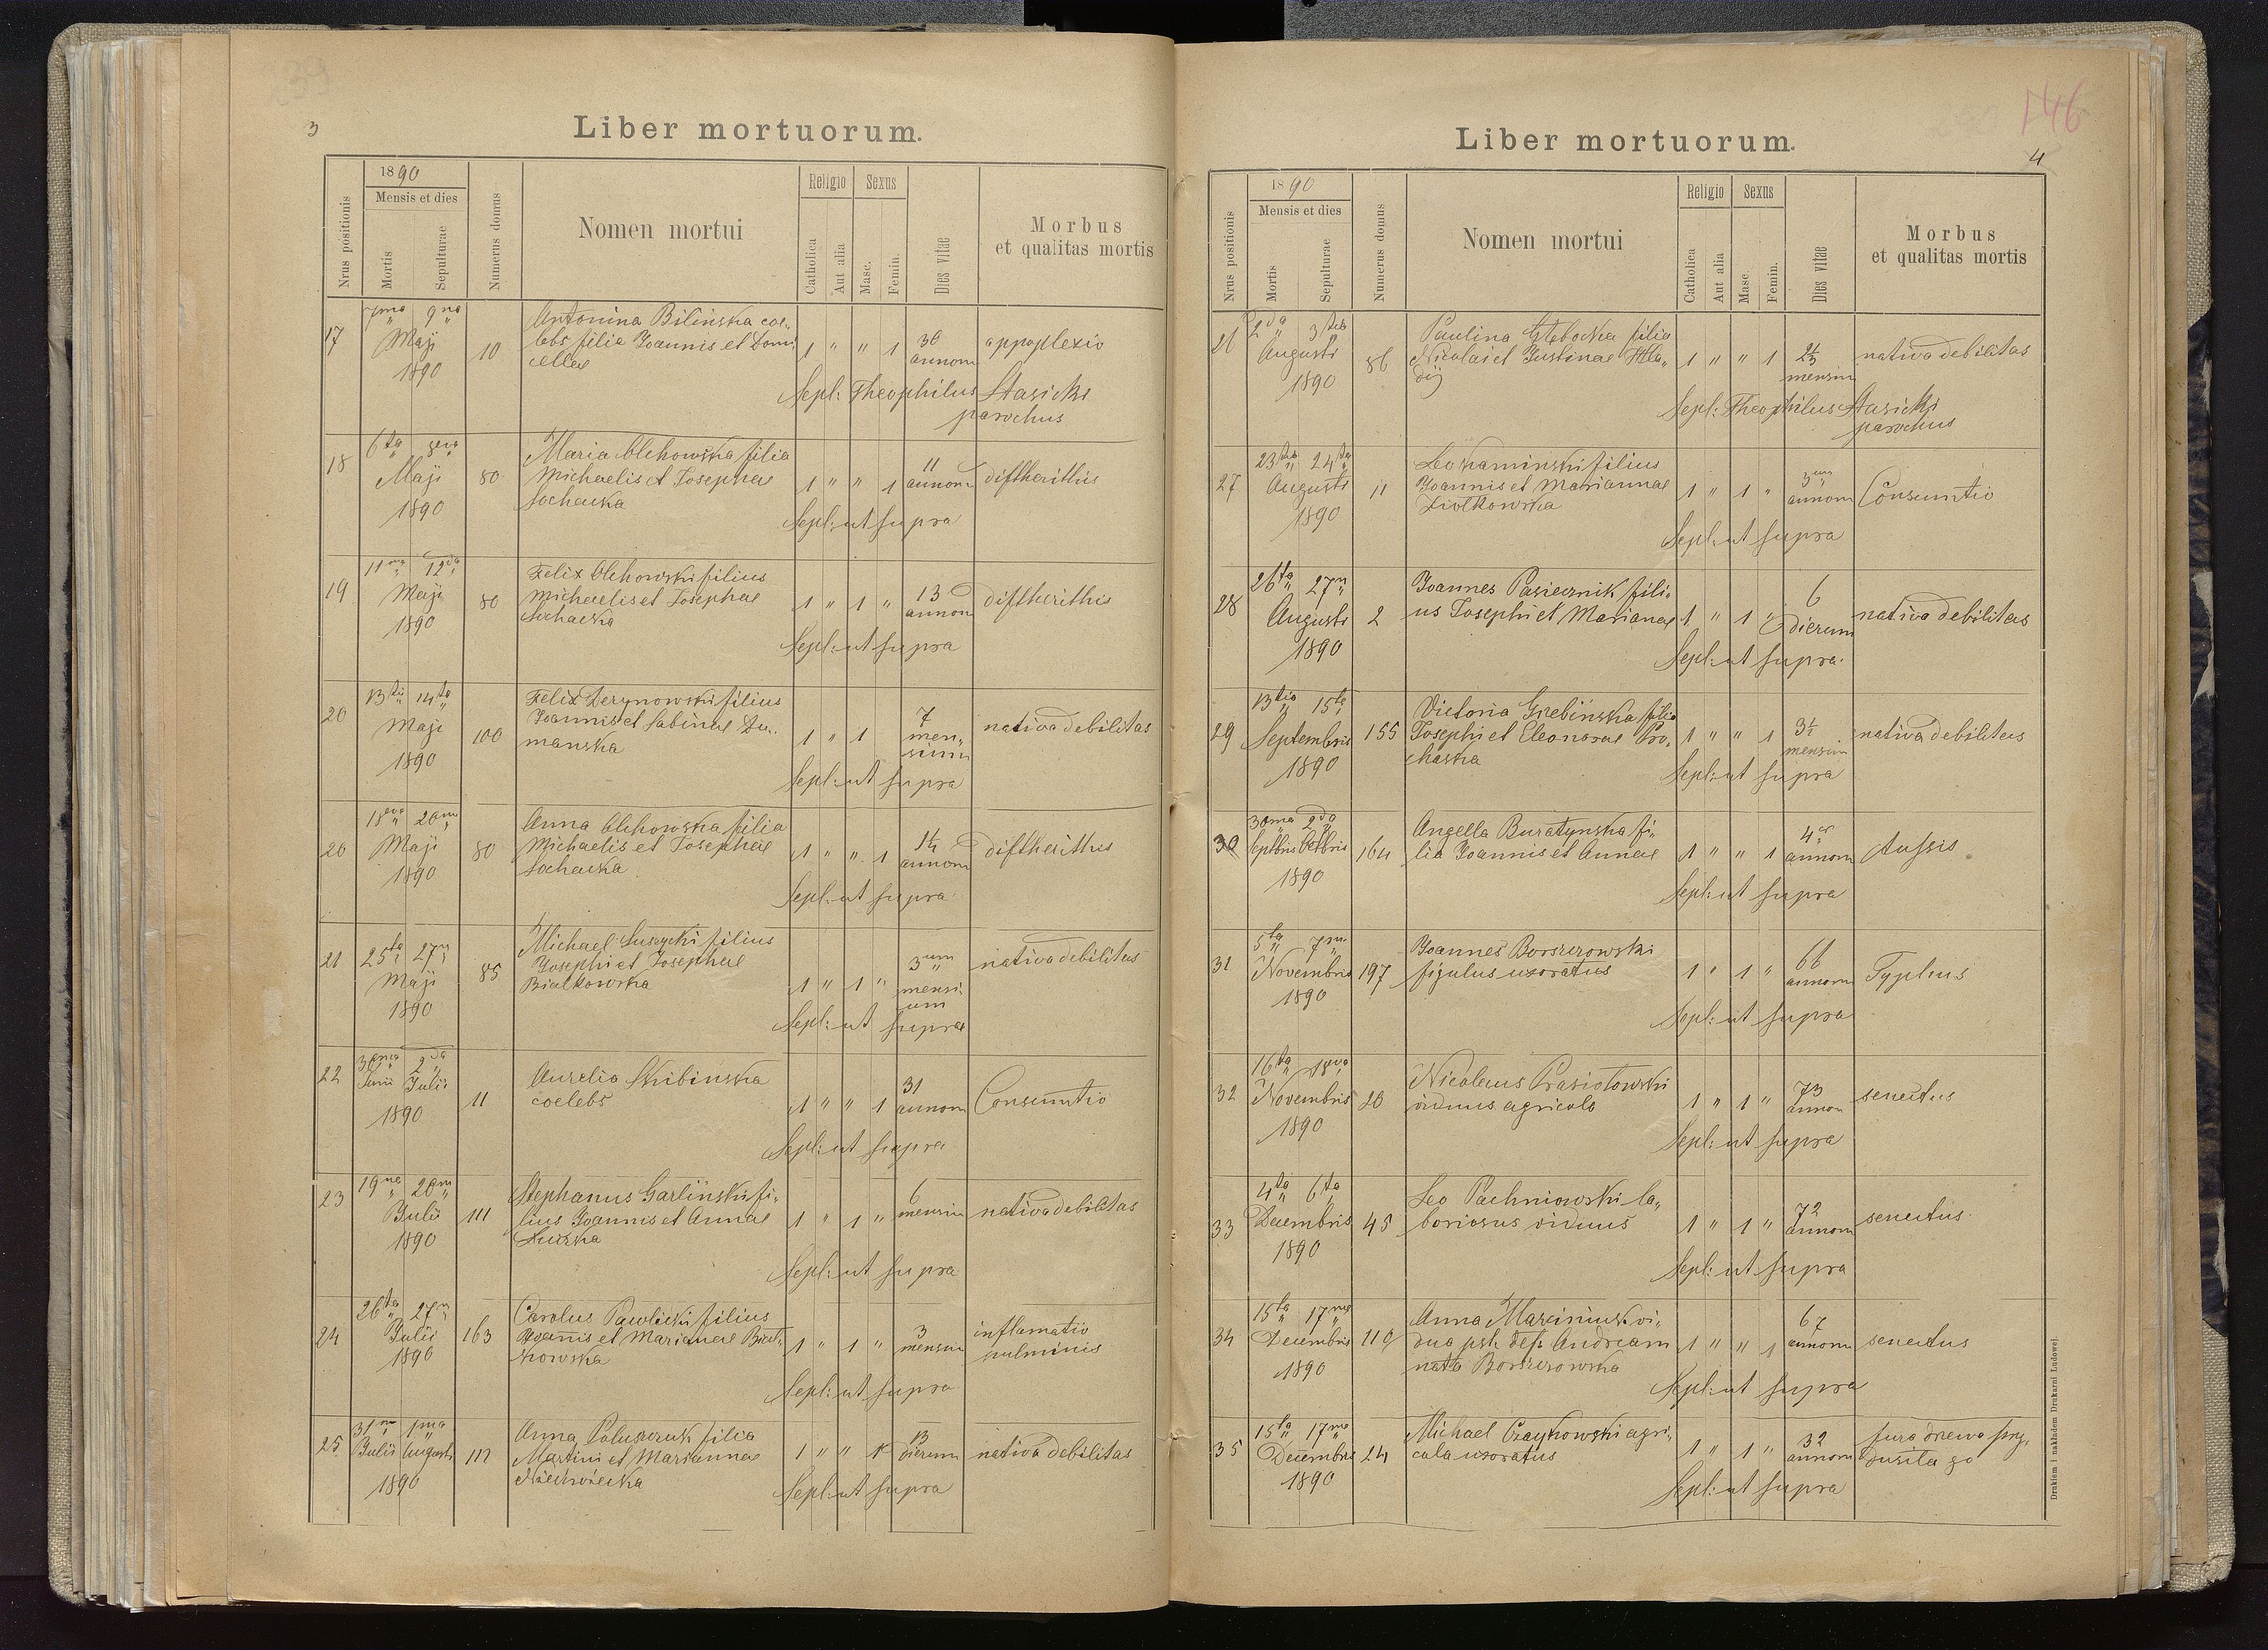 3
Liber mortuorum.
Nrus positionis
1890
Mensis et dies
Mortis
Sepulturae
Numerus domus
Nomen mortui
Religio
Catholica
Aut alia
Sexus
Masc.
Femin.
Dies vitae
Morbus
et qualitas mortis
17
7ma 9na
Maji
1890
10
Antonina Bilińska coe-
lebs filia Joannis et Dom
cellae
1 " " 1
30
annom
appoplexio
Sepl: Theophilus Stasicki
parochus
18
6ta 8va
Maji
1890
80
Maria Olchowska filia
Michaelis et Josephae
Sochacka
1 " " 1
11
annom
diftherithis
Sepl: ut supra
19
11ma 12da
Maji
1890
80
Felix Olchowski filius
Michaelis et Josephae
Sochacka
1 " 1 "
13
annom
diftherithis
Sepl: ut supra
20
13tii 14ta
Maji
1890
100
Felix Derynowski filius
Joannis et Sabinae Du-
manska
1 " 1
7
men-
sium
nativa debilitas
Sepl: ut supra
20
18va 20ma
Maji
1890
80
Anna Olchowska filia
Michaelis et Josephae
Sochacka
1 " " 1
1½
annom
diftherithis
Sepl: ut supra
21
25ta 27m
Maji
1890
85
Michael Suszycki filius
Josephi et Josephae
Białkowska
1 " 1 "
3um
mensi-
um
nativa debilitas
Sepl: ut supra
22
30ma 2da
Junii Julii
1890
11
Aurelia Skibinska
coelebs
1 " " 1
31
annom
Consumtio
Sepl: ut supra
23
19na 20m
Julii
1890
111
Stephanus Garliński fi-
lius Joannis et Annae
1 " 1 "
6
mensiu
nativa debilitas
Sepl: ut supra
24
26ta 27m
Julii
1890
163
Carolus Pawlicki filius
Joannis et Marianae Biał-
kowska
1 " 1 "
3
mensiu
inflamatio
pulminis
Sepl: ut supra
25
31m 1ma
Julii Augusti
1890
112
Anna Poluszczuk filia
Martini et Mariannae
1 " " 1
13
dierum
nativa debilitas
Sepl: ut supra
146
4
Liber mortuorum.
Nrus positionis
1890
Mensis et dies
Mortis
Sepulturae
Numerus domus
Nomen mortui
Religio
Catholica
Aut alia
Sexus
Masc.
Femin.
Dies vitae
Morbus
et qualitas mortis
26
2da 3tia
Augusti
1890
86
Paulina Głębocka filia
Nicolai et Justinae Hła-
dij
1 " " 1
2½
mensiu
nativa debilitas
Sepl: Theophilus Stasicki
parochus
27
23tia 24ta
Augusti
1890
11
Leo Kaminski filius
Joannis et Mariannae
Ziołkowska
1 " 1 "
3um
annom
Consumtio
Sepl: ut supra
28
26ta 27m
Augusti
1890
2
Joannes Pasiecznik fili-
us Josephi et Marianae
1 " 1 "
6
dierum
nativa debilitas
Sepl: ut supra.
29
13tia 15ta
Septembris
1890
155
Victoria Grebińska filia
Josephi et Eleonorae Pro-
chaska
1 " " 1
3½
mensiu
nativa debilitas
Sepl: ut supra
30
30ma 2da
Septbris Octbris
1890
164
Angella Buratynska fi-
lia Joannis et Annae
1 " " 1
4or
annom
tussis
Sepl: ut supra
31
5ta 7ma
Novembris
1890
197
Joannes Borszczowski
figulus uxoratus
1 " 1 "
66
annom
Typhus
Sepl: ut supra
32
16ta 18va
Novembris
1890
20
Nicolaus Prasiołowski
viduus agricola
1 " 1 "
73
annom
senectus
Sepl: ut supra
33
4ta 6ta
Decembris
1890
45
Leo Pachniowski la-
boriosus viduus
1 " 1 "
72
annom
senectus
Sepl: ut supra
34
15ta 17ma
Decembris
1890
110
Anna Marciniuk vi-
dua pst. def. Andream
nata Borszczowska
1 " " 1
67
annom
senectus
Sepl: ut supra
35
15ta 17ma
Decembris
1890
24
Michael Czaykowski agri-
cola uxoratus
1 " 1 "
32
annom
fura drewa przy-
dusiła go
Sepl: ut supra
Drukiem i nakładem Drukarni Ludowej.